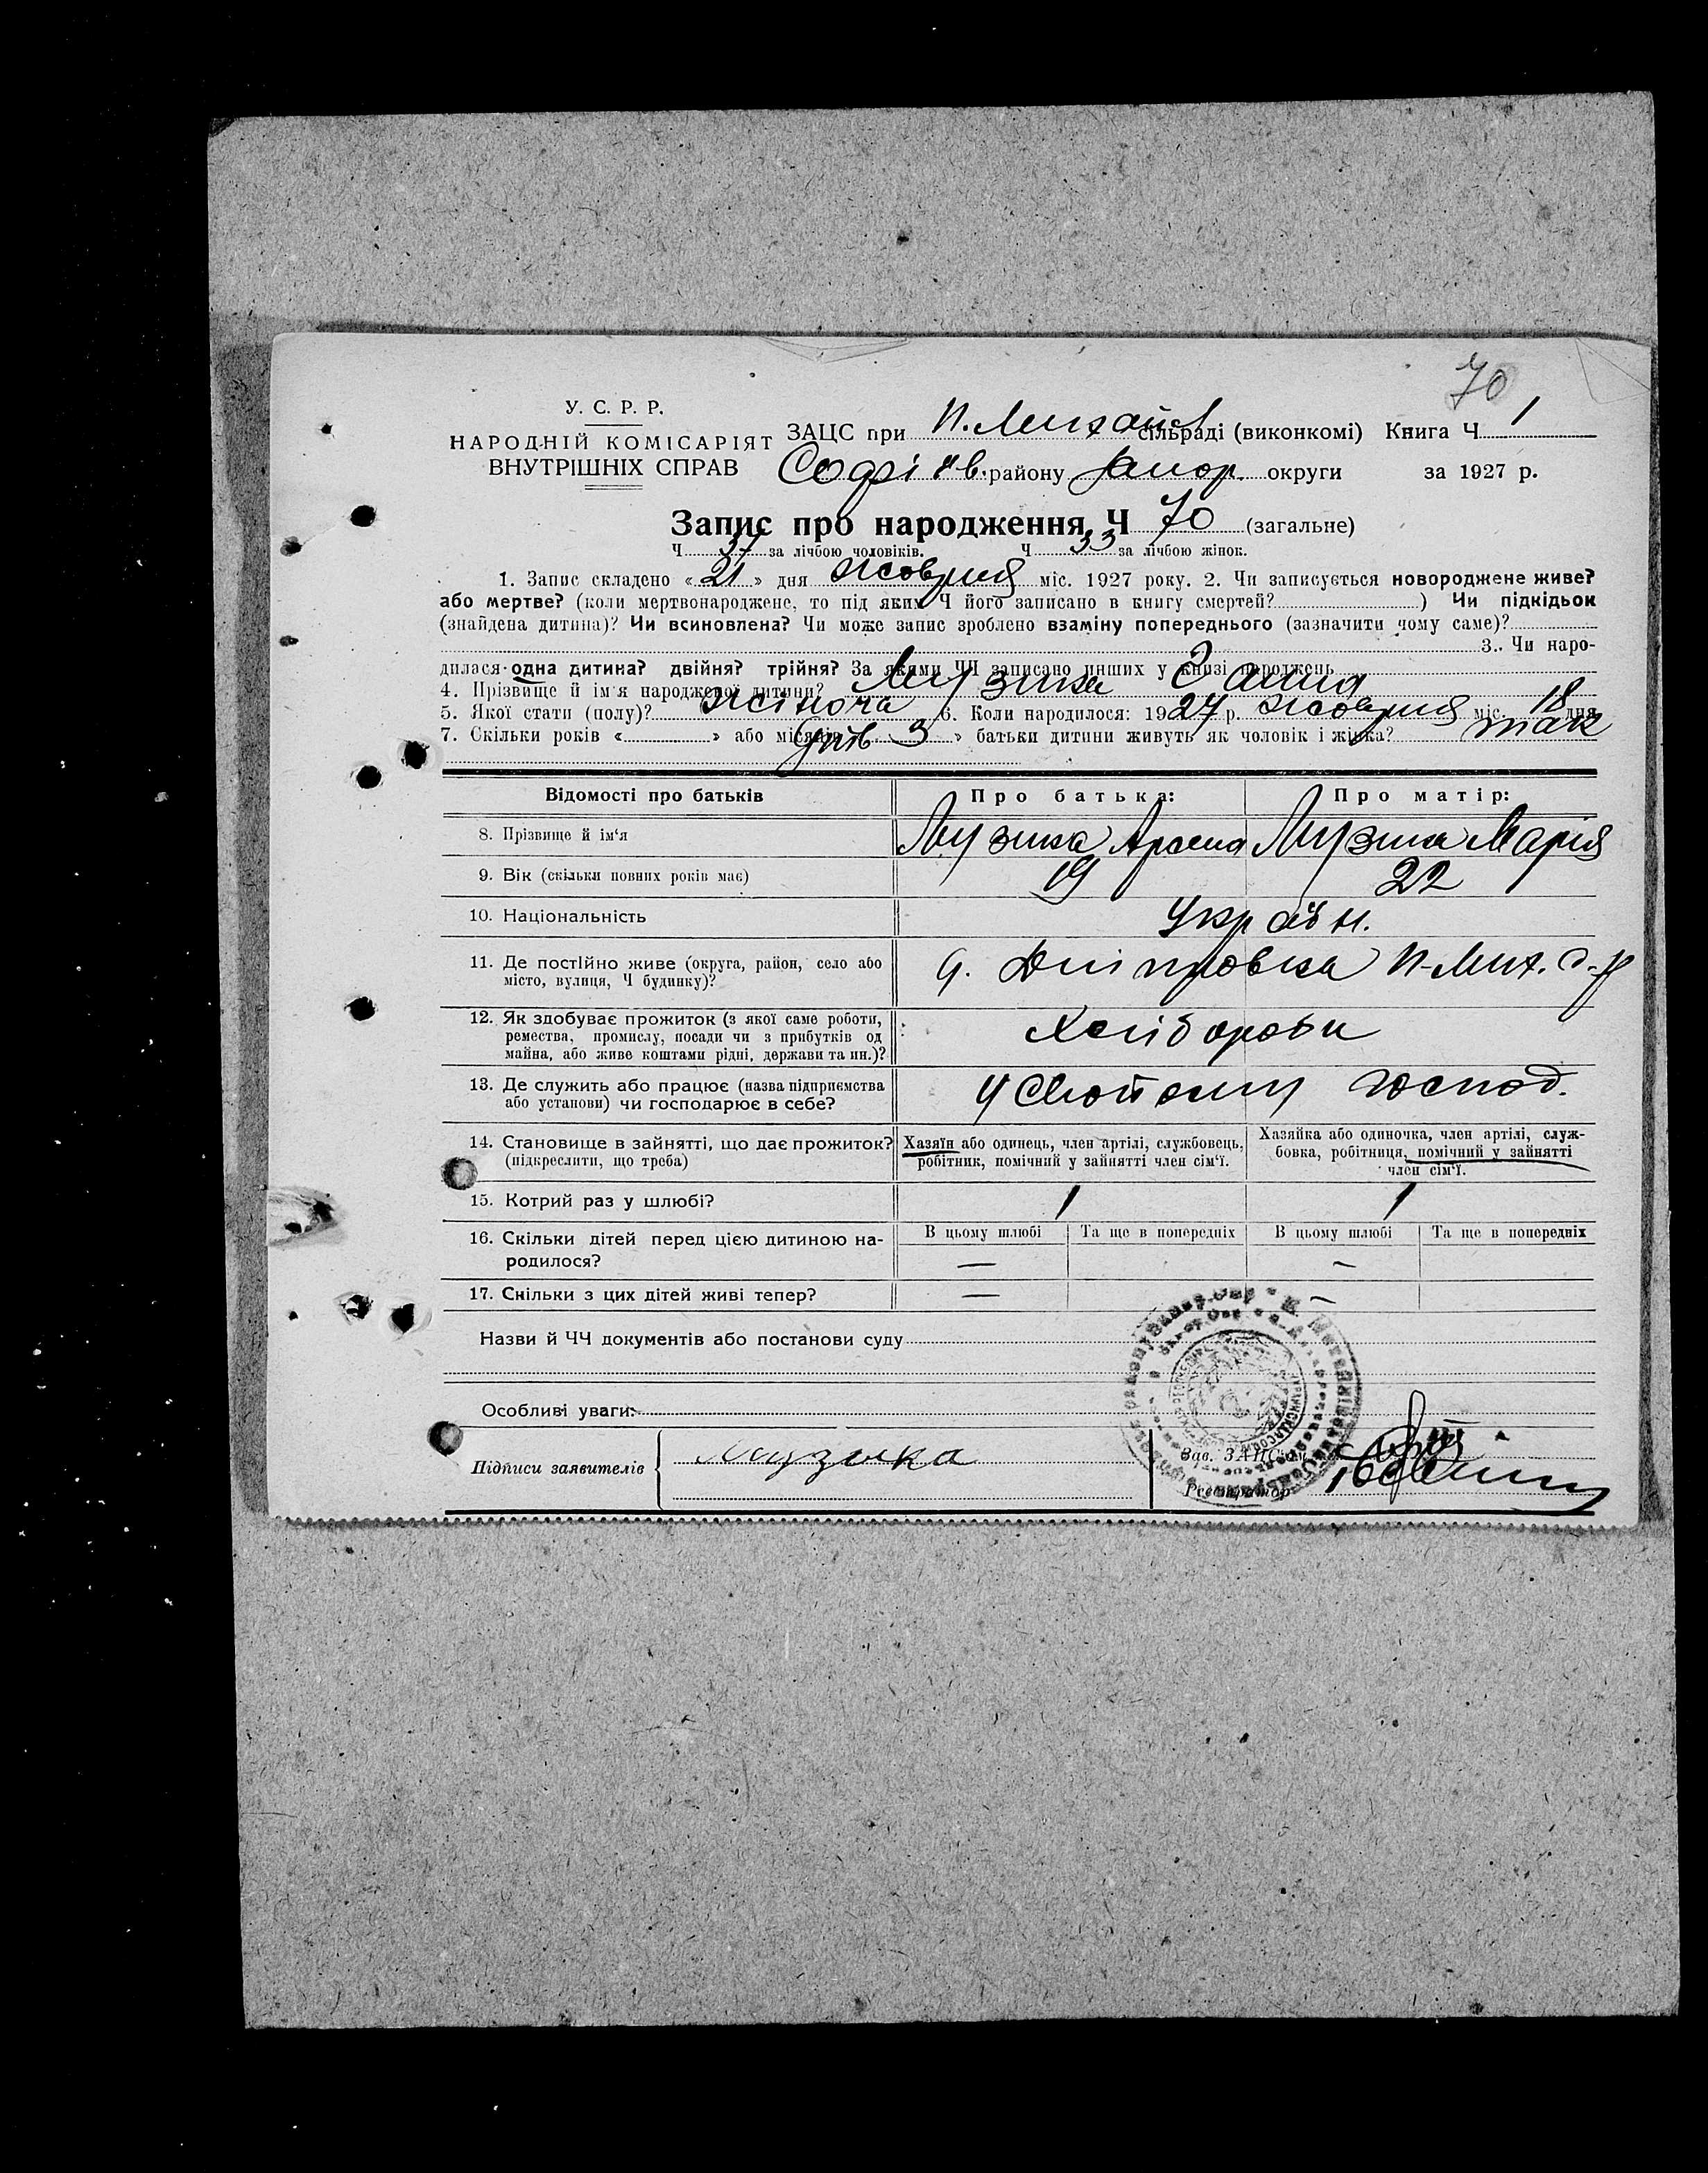 70
У. С. Р. Р.
НАРОДНІЙ КОМІСАРІЯТ
ВНУТРІШНІХ СПРАВ
ЗАЦС при Н. Михайл сільраді (виконкомі) Книга Ч 1
Софіїв. району Запор. округи за 1927 р.
Запис про народження Ч 70 (загальне)
Ч 37 за лічбою чоловіків. Ч 33 за лічбою жінок.
1. Запис складено « 21 » дня жовтня міс. 1927 року. 2. Чи записується новороджене живе?
або мертве? (коли мертвонароджене, то під яким Ч його записано в книгу смертей? ) Чи підкідьок
(знайдена дитина)? Чи всиновлена? Чи може запис зроблено взаміну попереднього (зазначити чому саме)?
3. Чи наро-
дилася одна дитина? двійня? трійня? За якими ЧЧ записано инших у книзі народжень
4. Прізвище й ім'я народженої дитини? Музика Ганна
5. Якої стати (полу)? жіноча 6. Коли народилося: 1927 р. жовтня міс. 18 дня
7. Скільки років « » або місяців 3 » батьки дитини живуть як чоловік і жінка? так
Відомості про батьків Про батька: Про матір:
8. Прізвище й ім'я Музика Арсенa Музика Марія
9. Вік (скільки повних років має) 19 22
10. Національність Україн.
11. Де постійно живе (округа, район, село або
місто, вулиця, Ч будинку)? Дніпровка Н-Мих. с-р
12. Як здобуває прожиток (з якої саме роботи,
ремества, промислу, посади чи з прибутків од
майна, або живе коштами рідні, держави та ин.)? Хлібороби
13. Де служить або працює (назва підприємства
або установи) чи господарює в себе? У своїому господ.
14. Становище в зайнятті, що дає прожиток?
(підкреслити, що треба)
Хазяїн або одинець, член артілі, службовець,
робітник, помічний у зайнятті член сім'ї.
Хазяйка або одиночка, член артілі, служ-
бовка, робітниця, помічний у зайнятті
член сім'ї.
15. Котрий раз у шлюбі? 1 1
16. Скільки дітей перед цією дитиною на-
родилося?
В цьому шлюбі Та ще в попередніх В цьому шлюбі Та ще в попередніх
— —
17. Скільки з цих дітей живі тепер? — —
Назви й ЧЧ документів або постанови суду
Особливі уваги:
Підписи заявителів Музыка
Зав. ЗАЦС'ом
Реєстратор